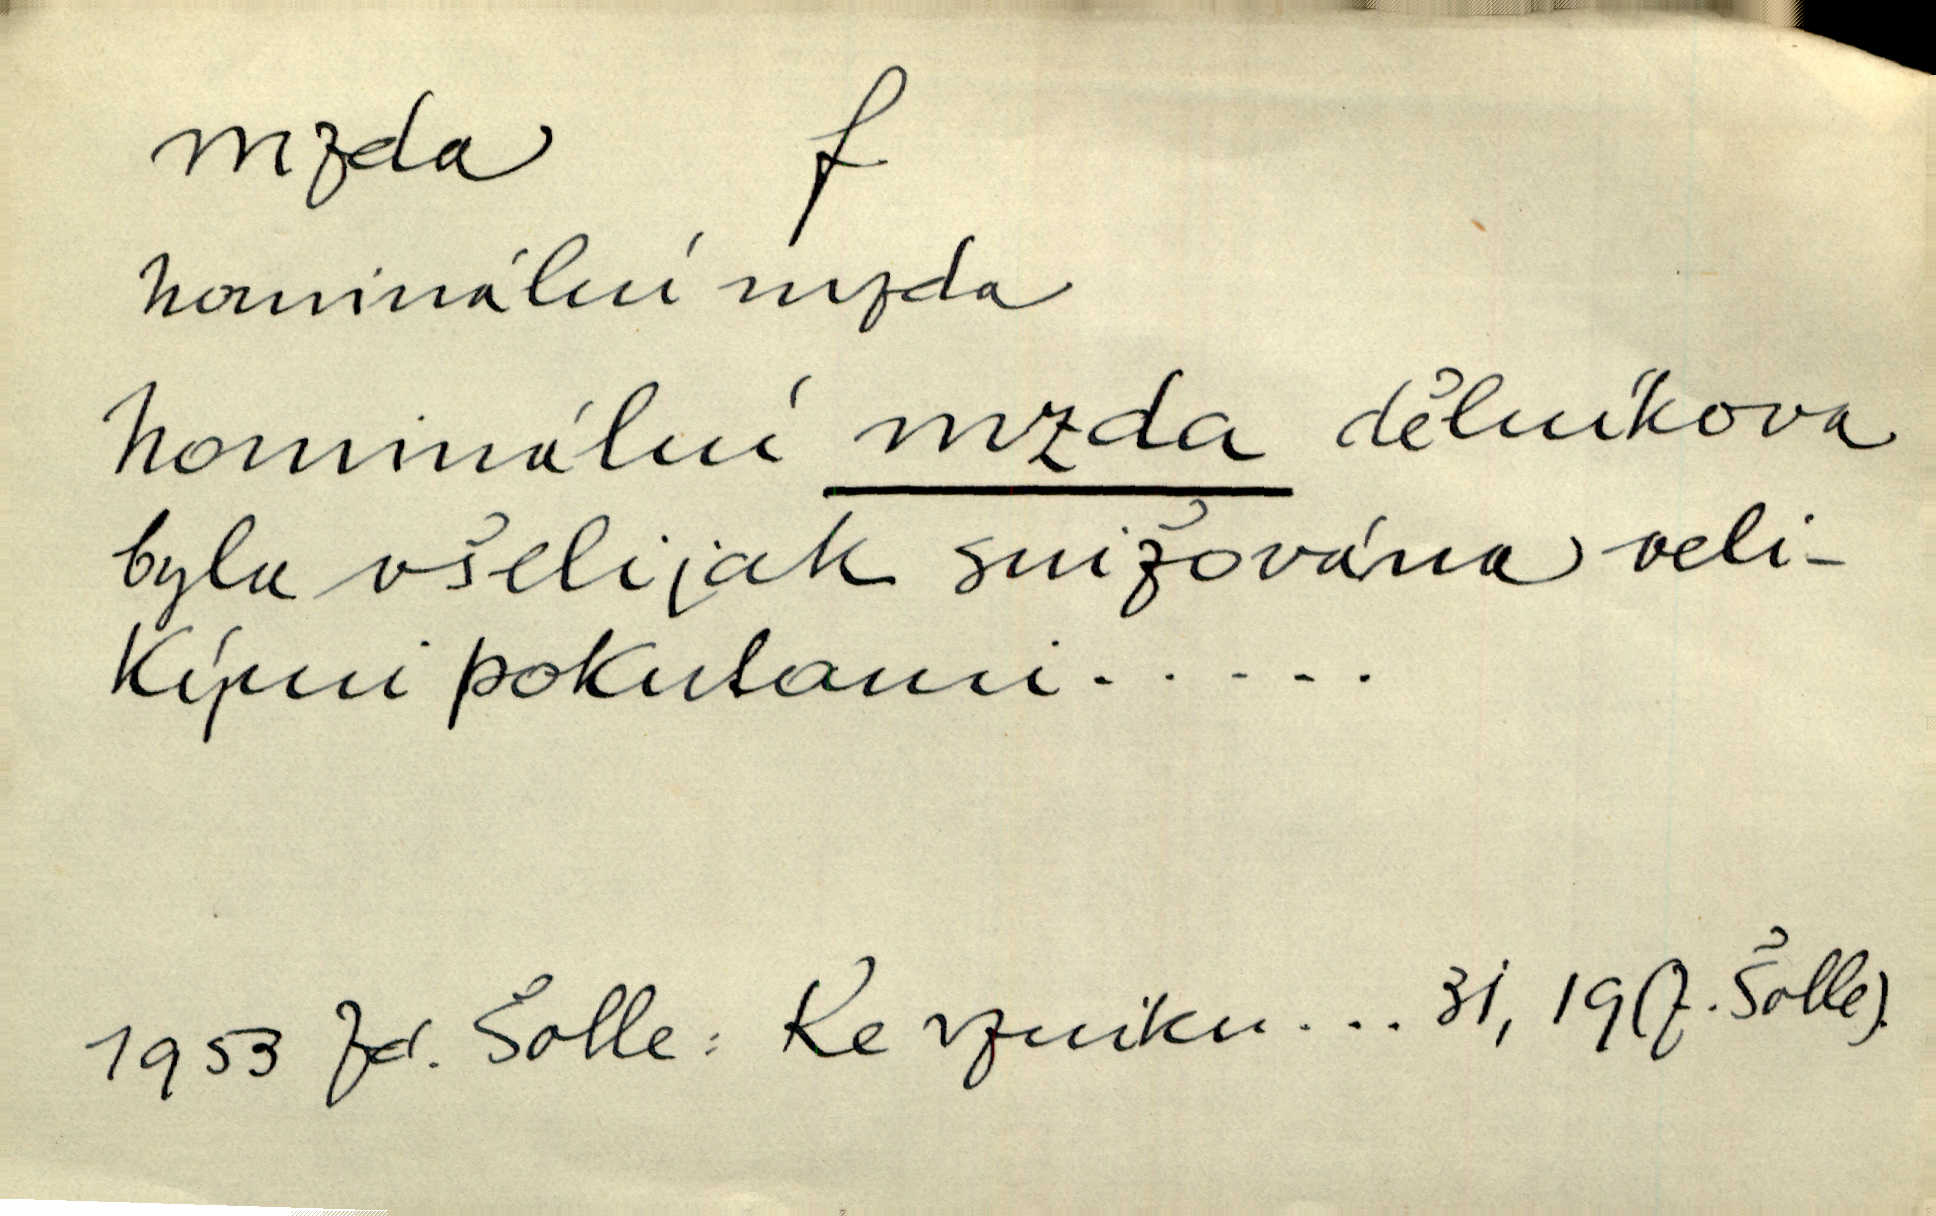 mzda f
nominální mzda
nominální mzda dělníkova
byla všelijak snižována veli-
kými pokutami.....
1953 Zd. Šolle: Ke vzniku... 31, 19 (Z. Šolle).